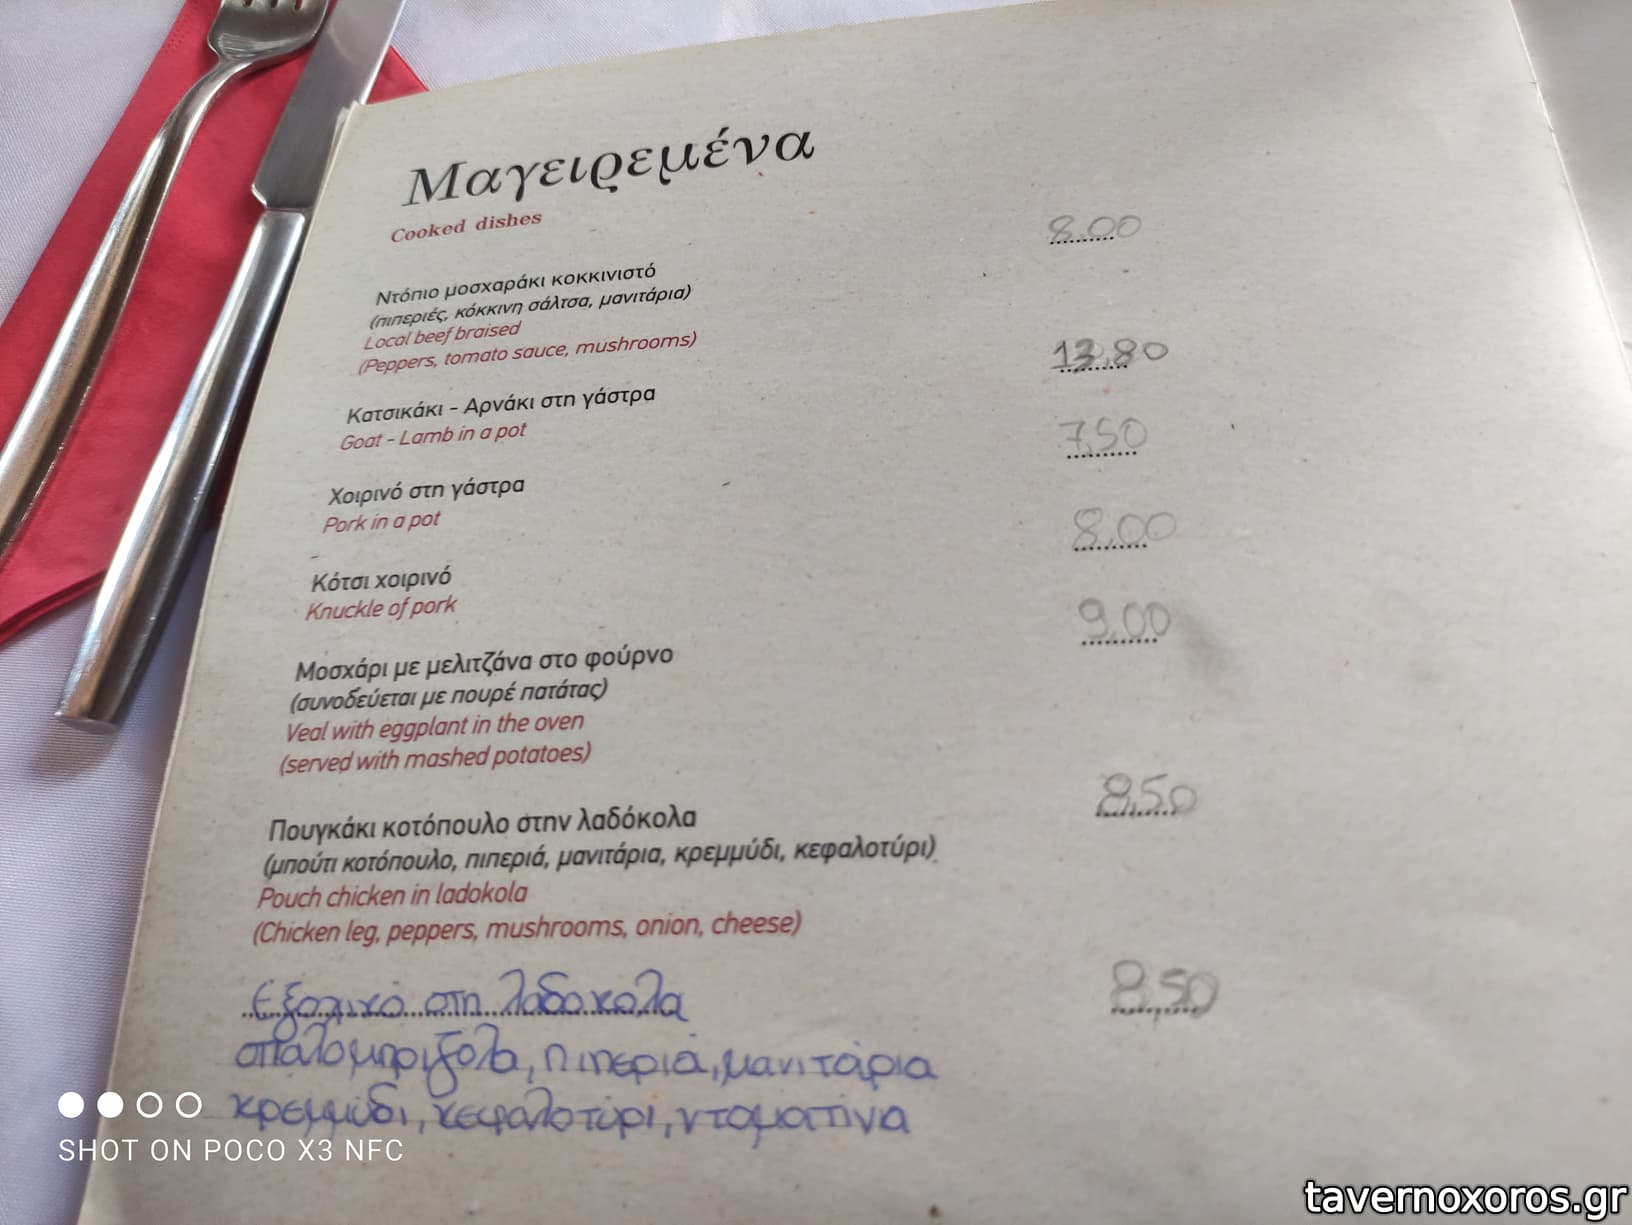 Μαγειρεμένα
Cooked dishes
8.00
Ντόπιο μοσχαράκι κοκκινιστό
(πιπεριές, κόκκινη σάλτσα, μανιτάρια)
Local beef braised
(Peppers, tomato sauce, mushrooms)
13,80
Κατσικάκι - Αρνάκι στη γάστρα
Goat - Lamb in a pot
7,50
Χοιρινό στη γάστρα
Pork in a pot
8,00
Κότσι χοιρινό
Knuckle of pork
9,00
Μοσχάρι με μελιτζάνα στο φούρνο
(συνοδεύεται με πουρέ πατάτας)
Veal with eggplant in the oven
(served with mashed potatoes)
8,50
Πουγκάκι κοτόπουλο στην λαδόκολα
(μπούτι κοτόπουλο, πιπεριά, μανιτάρια, κρεμμύδι, κεφαλοτύρι)
Pouch chicken in ladokola
(Chicken leg, peppers, mushrooms, onion, cheese)
Εξοχικό στη λαδοκολα 8.50
σπαλομπριζολα, πιπεριά, μανιτάρια
κρεμμύδι, κεφαλοτύρι, ντοματίνα
SHOT ON POCO X3 NFC
tavernoxoros.gr